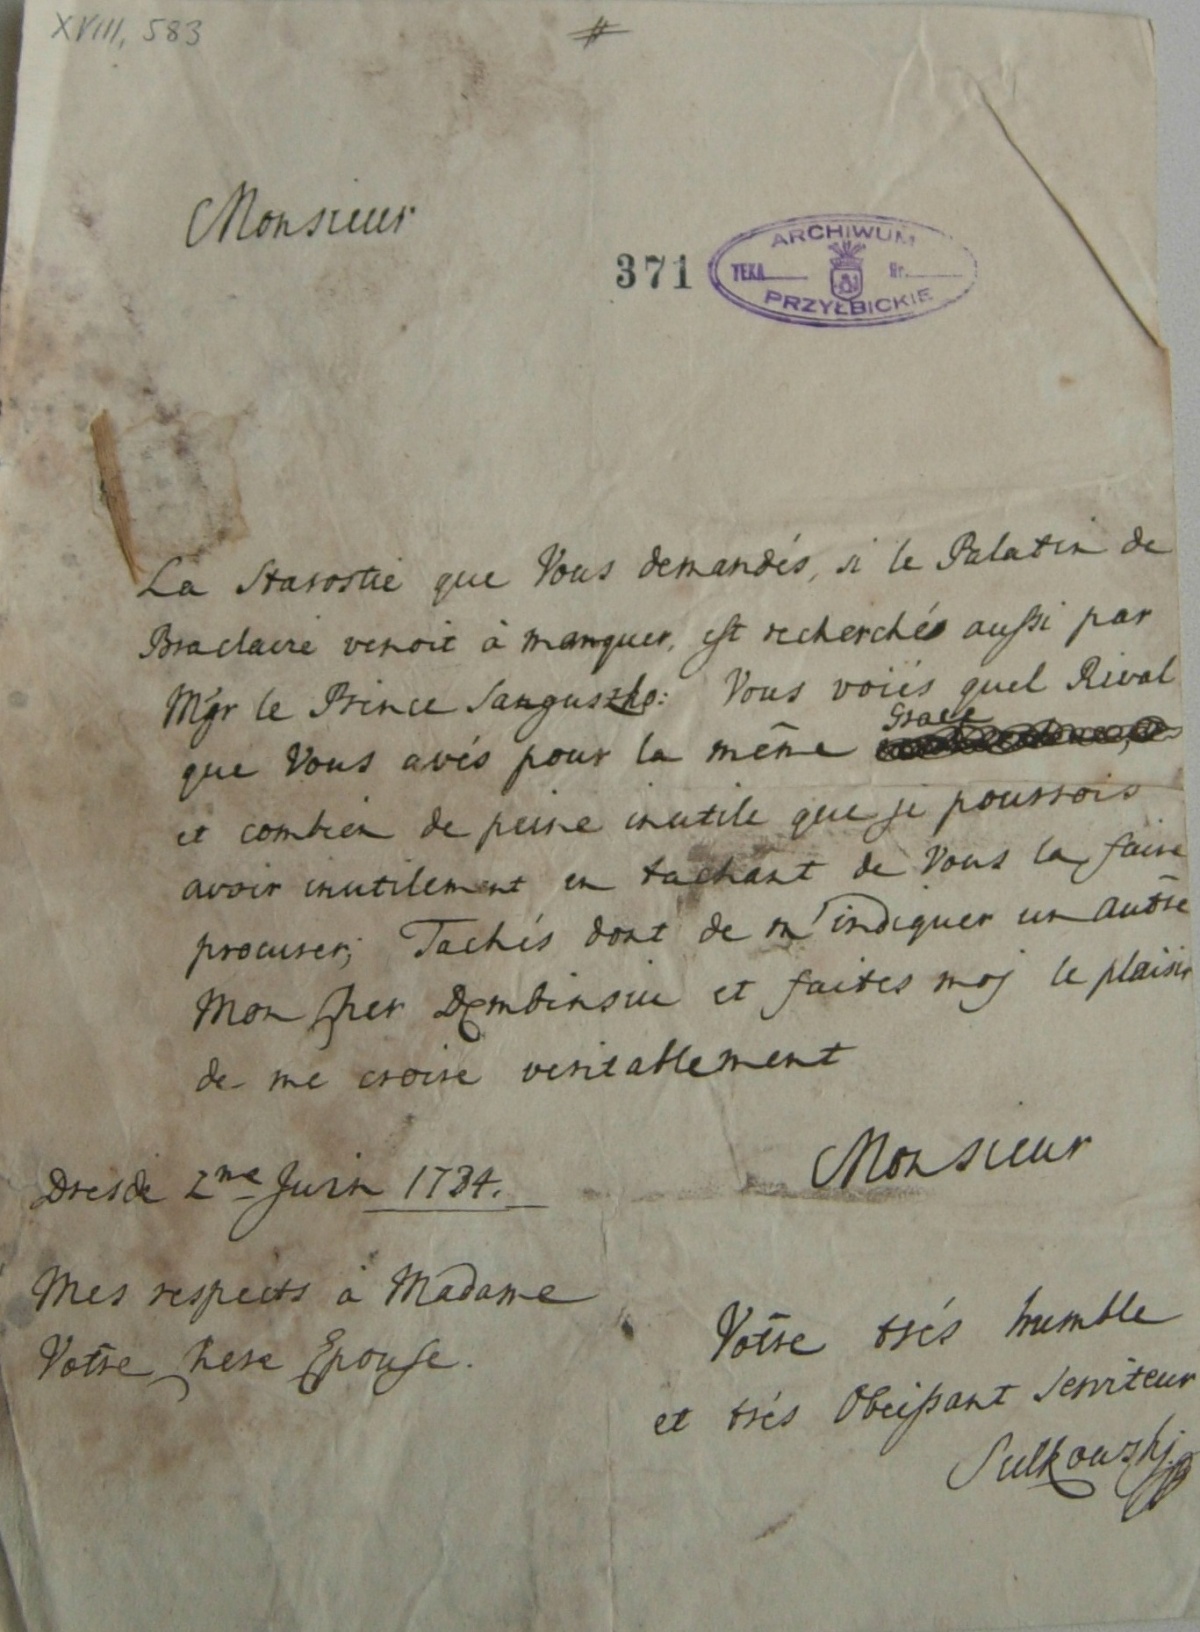 XVIII, 583
#
Monsieur
371
ARCHIWUM
TEKA Nr.
PRZYŁBICKIE
La Starostie que Vous demandés, si le Palatin de
Braclaire venoit à manquer, est recherchés aussi par
Mgr le Prince Sanguszko: Vous voiés quel Rival
que Vous avés pour la même Grace
et combien de peine inutile que je pourrois
avoir inutilement en tachant de Vous la faire
procurer; Tachés dont de m'indiquer un autre
Mon cher Dembinsiu et faites moj le plaisir
de me croire veritablement
Monsieur
Dresde 2me Juin 1734.
Mes respects à Madame
Votre chere Epouse.
Votre trés humble
et trés Obeissant Serviteur
Sulkowskj